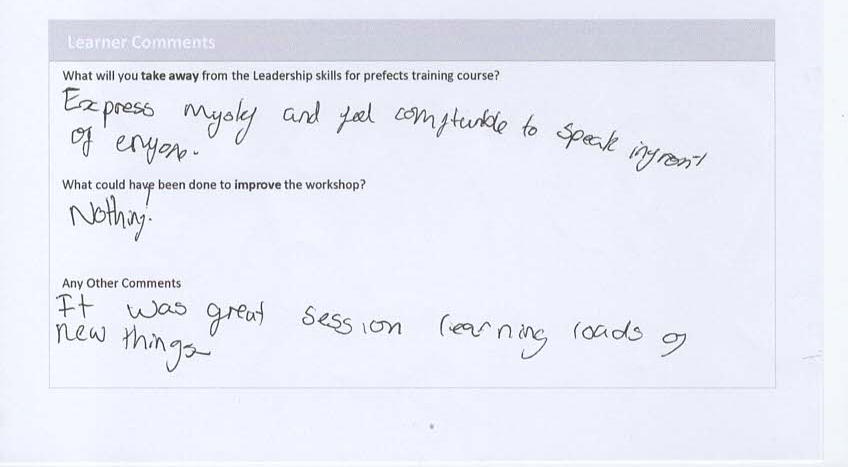 Learner Comments
What will you take away from the Leadership skills for prefects training course?
Express mysely and feel comfturble to speak infront
of enyone.
What could have been done to improve the workshop?
Nothing!
Any Other Comments
It was great session learning loads of
new things